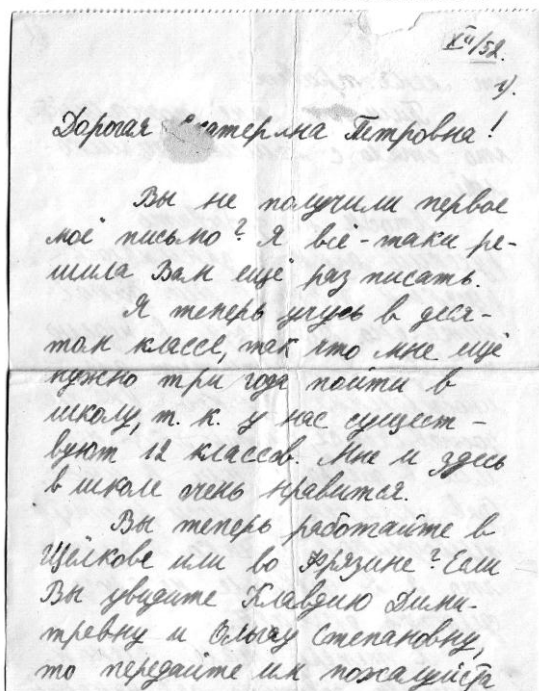 XII/52.
1).
Дорогая Екатерина Петровна!
Вы не получили первое
моё письмо? Я всё-таки ре-
шила Вам ещё раз писать.
Я теперь учусь в деся-
том классе, так что мне ещё
нужно три года пойти в
школу, т. к. у нас сущест-
вуют 12 классов. Мне и здесь
в школе очень нравится.
Вы теперь работайте в
Щёлкове или во Фрязине? Если
Вы увидите Клавдию Дими-
тревну и Ольгу Степановну,
то передайте им пожалуйста